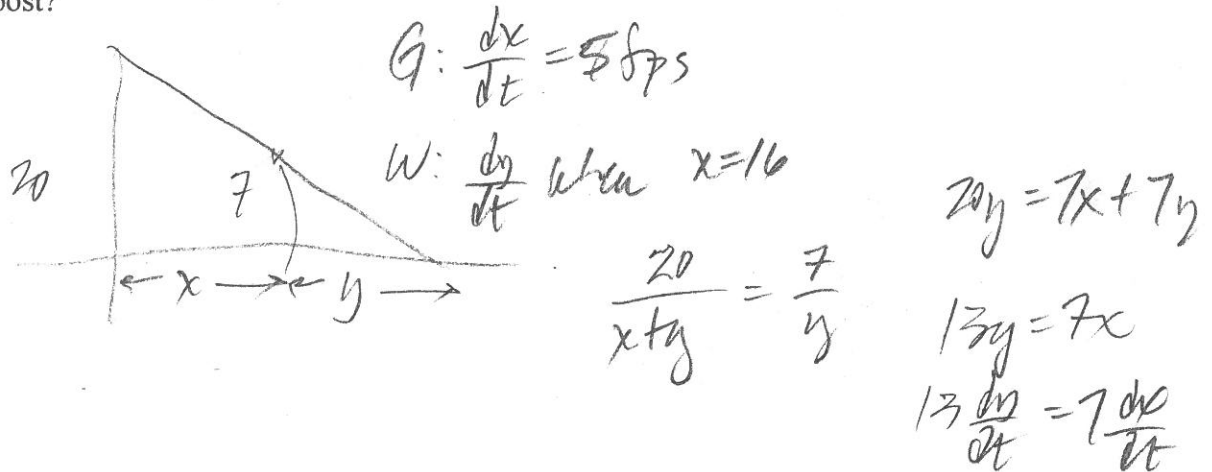 post?
G: dx/dt = 5 fps
W: dy/dt when x=16
20
7
x
y
20/(x+y) = 7/y
20y = 7x + 7y
13y = 7x
13 dy/dt = 7 dx/dt